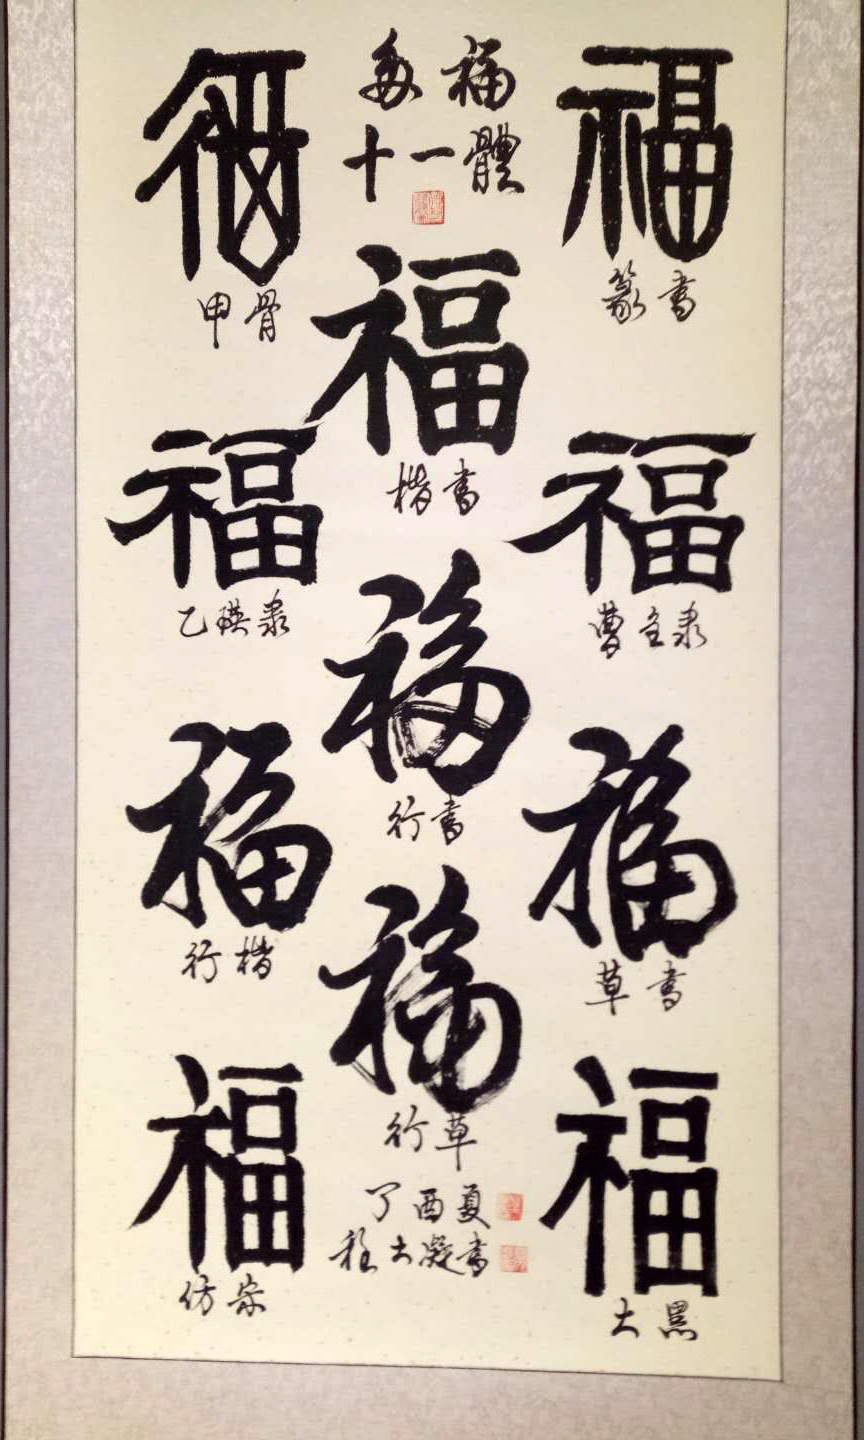 福
十一體
福
福
甲骨
篆書
福
楷書
福
福
乙瑛隶
曹全隶
福
行書
福
福
行楷
草書
福
行草
福
福
丁酉夏
程 書
仿宋
大黑